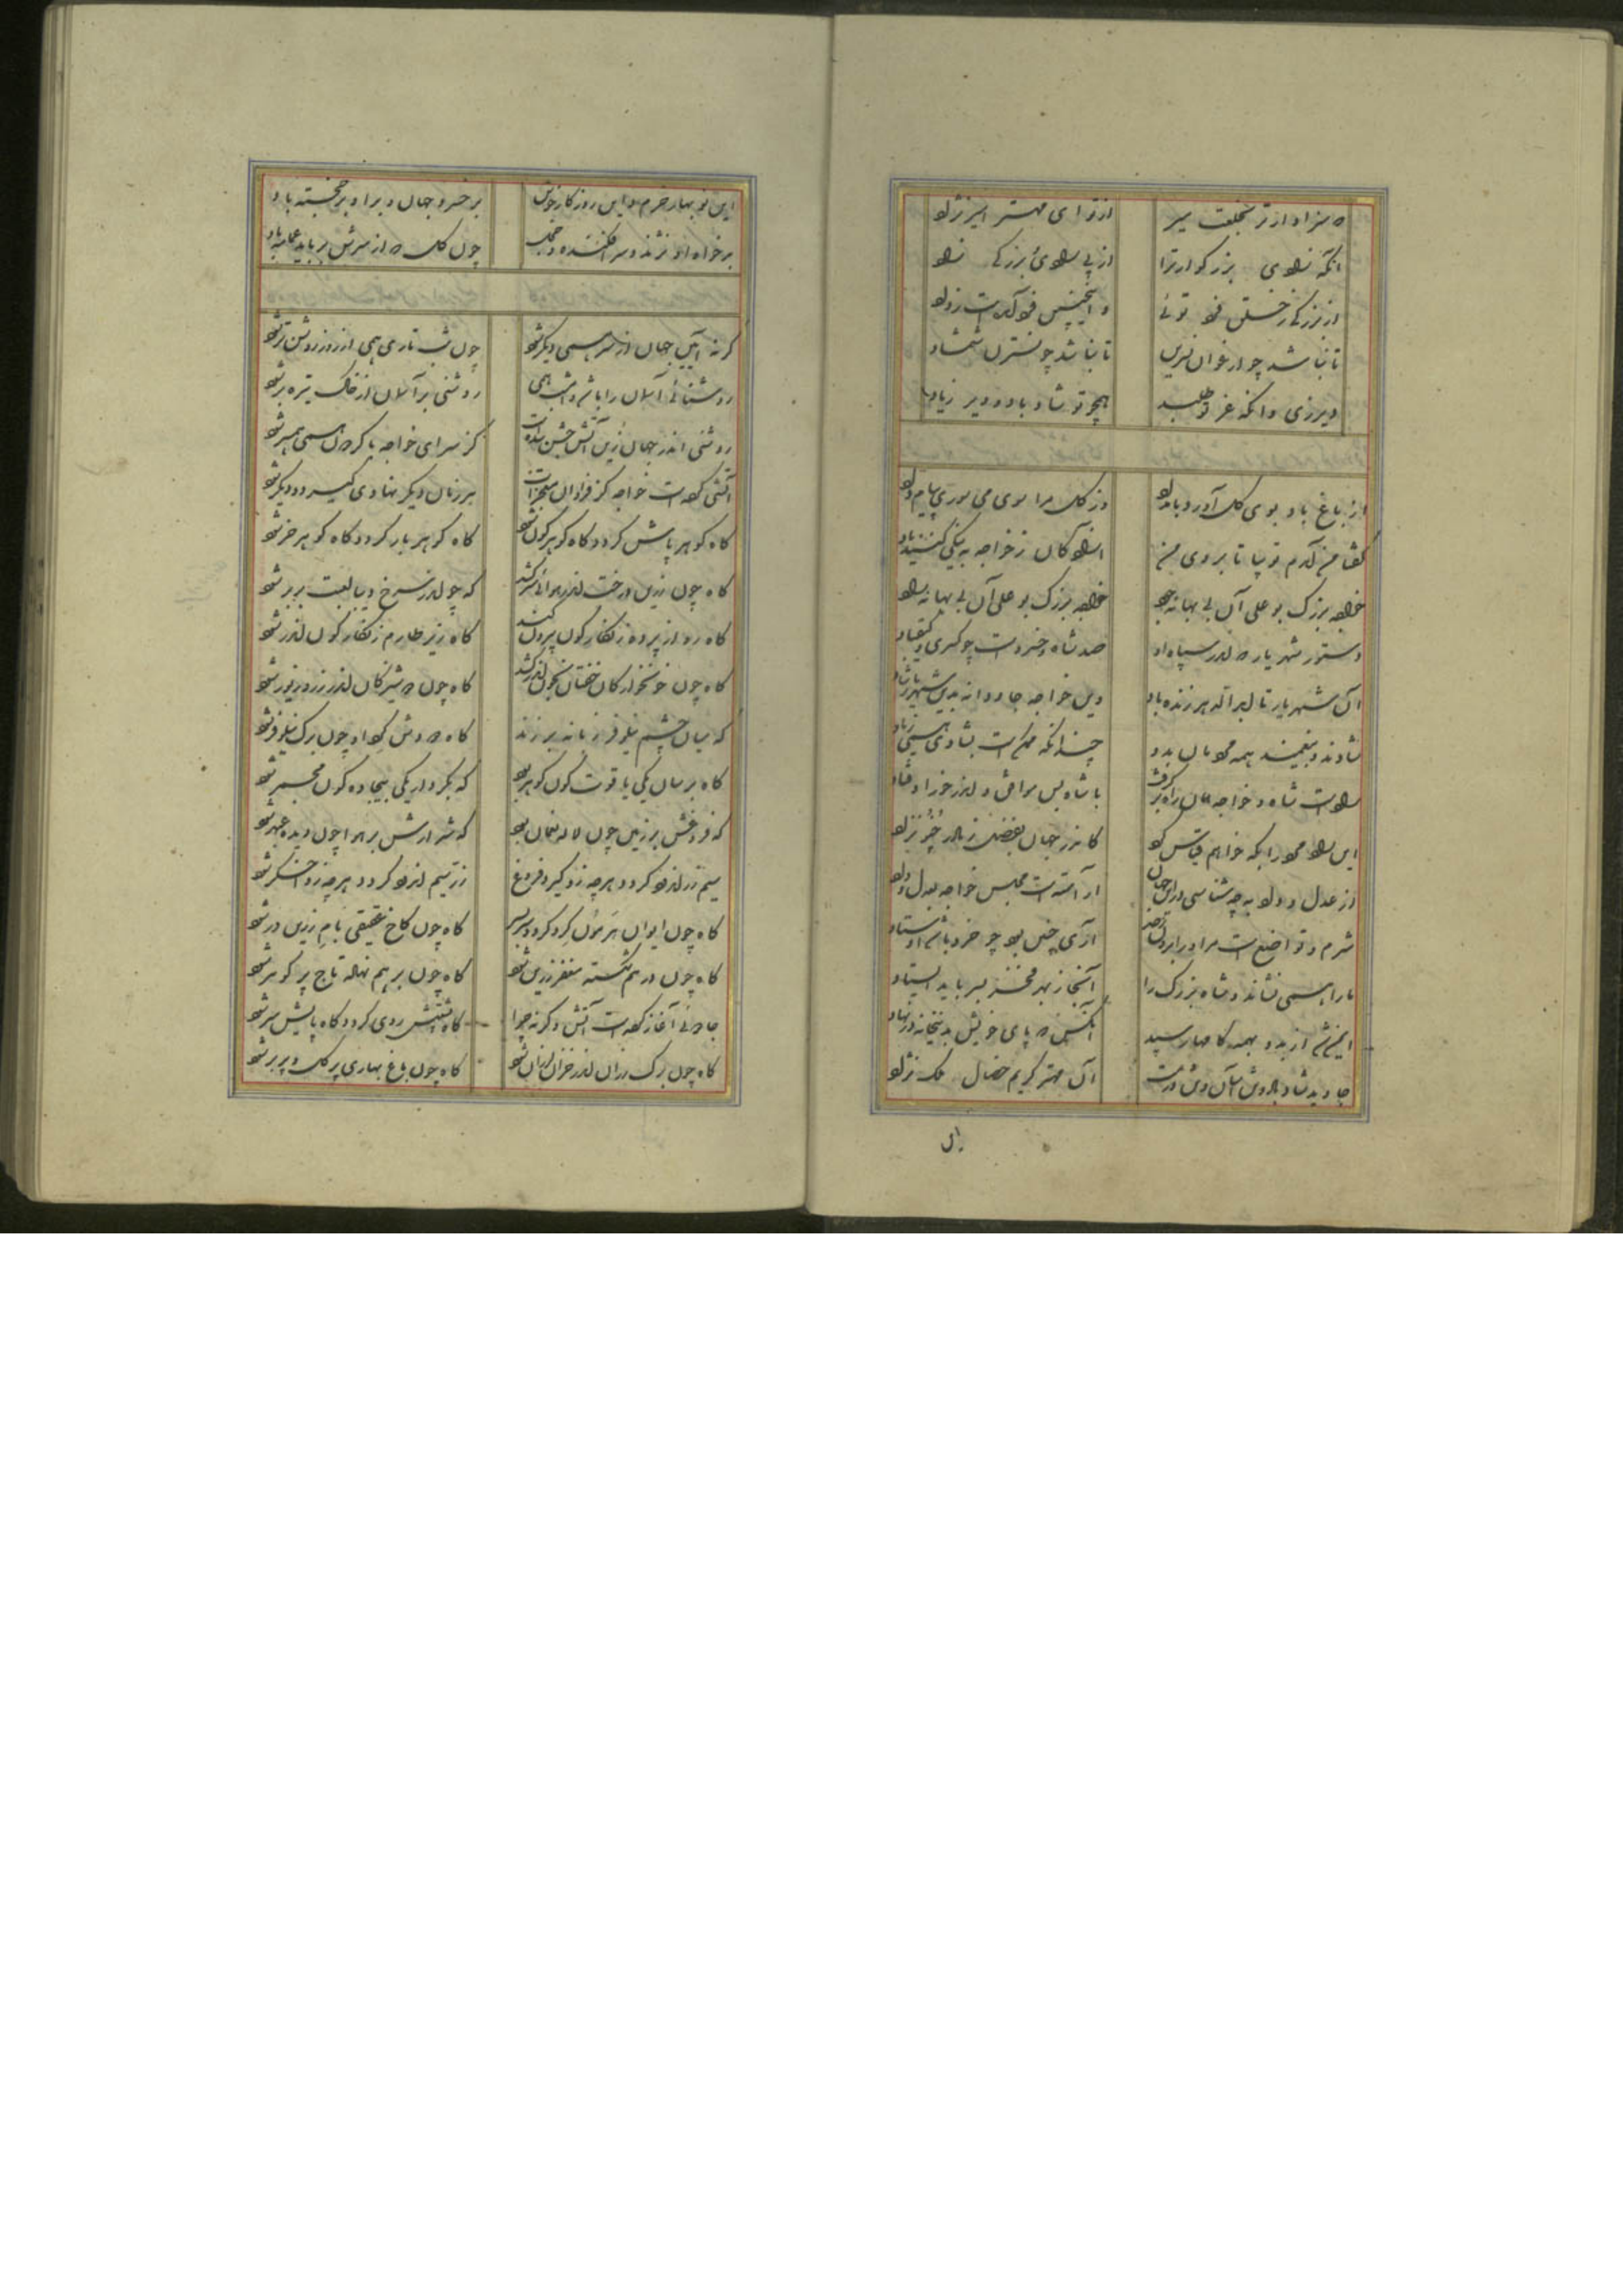 نه سزاوارتر بخلعت میر از تو ای مهتر امیر نژاد
آنکه نهادی بزرگوار ترا از پی سود بزرگی نهاد
از بزرگی ز خسروان تو توئی و اینچنین خود آمدست زداد
تا نباشد چو ارغوان نسرین تا نباشد چو نسترن شمشاد
دیر زی وانکه عز تو طلبید همچو تو شاد باد و دیر زیاد
از باغ باد بوی گل آورد بامداد وز گل مرا سوی می سوری پیام داد
گفتا من آمدم تو بیا تا بروی من آزادگان ز خواجه به نیکی کنند یاد
خواجه بزرگ بو علی آن بی بهانه جود خواجه بزرگ بو علی آن بی بهانه راد
دستور شهریار که اندر سپاه او صد شاه و خسروست چو کسری و کیقباد
آن شهریار تا بابد زنده باد وین خواجه جاودانه بدین شهریار شاد
شادند و بیغمند همه مردمان بدو چندانکه ممکنست بشادی همی زیاد
بوده است شاه و خواجه ما را با شاه بس موافق و اندر خور اوفتاد
این بود مر ورا که بخواهم قیاس کرد کاندر جهان بفضل ز مادر چنو نزاد
از عدل و داد به چه شناسی در این جهان آراسته است مجلس خواجه بعدل و داد
شرم و تواضع است مر او را آری چنین بود چو خرد باشد اوستاد
ما را همی نشاند و شاه بزرگ را آنجا ز بهر فخر بسر باید ایستاد
ایمن شد از بد و بهمه کامها رسید آنکس که پای خویش بدین خانه در نهاد
جاوید شاد باد و تن آسان و تندرست آن مهتر کریم خصال ملک نژاد
این
این نو بهار خرم و این روزگار خوش بر خسرو جهان و بر او بر خجسته باد
بدخواه او نژند و سر افکنده و خجل چون گل که از سرش برباید عمامه باد
گر نه آیین جهان از سر همی دیگر شود چون شب تاری همی از روز روشن‌تر شود
روشنائی آسمان را باشد و امشب همی روشنی بر آسمان از خاک تیره بر شود
روشنی اندر جهان زین آتش جشن سده است کز سرای خواجه با گردون همی همبر شود
آتشی کرده است خواجه کز فراوان معجزات هر زمان دیگر نهادی گیرد و دیگر شود
گاه گوهر پاش گردد گاه گوهرگون شود گاه گوهربار گردد گاه گوهر خر شود
گاه چون زرین درخت اندر هوائی سر کشد گه چو اندر سرخ دیبا لعبت بربر شود
گاه روی از پرده زنگارگون بیرون کند گاه زیر طارم زنگارگون اندر شود
گاه چون خونخوارگان خفتان بخون اندر کشد گاه چون دوشیزگان اندر زر و زیور شود
گه بسان چشم نیلوفر زبانه بر زند گاه دودش گرد او چون برگ نیلوفر شود
گاه بر سان یکی یاقوت گون گوهر بود گه بکردار یکی بیجاده گون مجمر شود
گه فروغش بر زمین چون لاله نعمان بود گه شرارش بر هوا چون دیده عبهر شود
سیم زر اندود گردد هر چه زو گیرد فروغ زر سیم اندود گردد هر چه زو اخگر شود
گاه چون دیوار برهون گرد گردد سر بسر گاه چون کاخ عقیقی بام زرین در شود
گاه چون در هم شکسته مغفر زرین شود گاه چون بر هم نهاده تاج پر گوهر شود
جادوئی آغاز کرده است آتش و گرنه چرا گاه پشتش روی گردد گاه پایش سر شود
گاه چون برگ رزان اندر خزان لرزان شود گاه چون باغ بهاری پر گل و پر بر شود